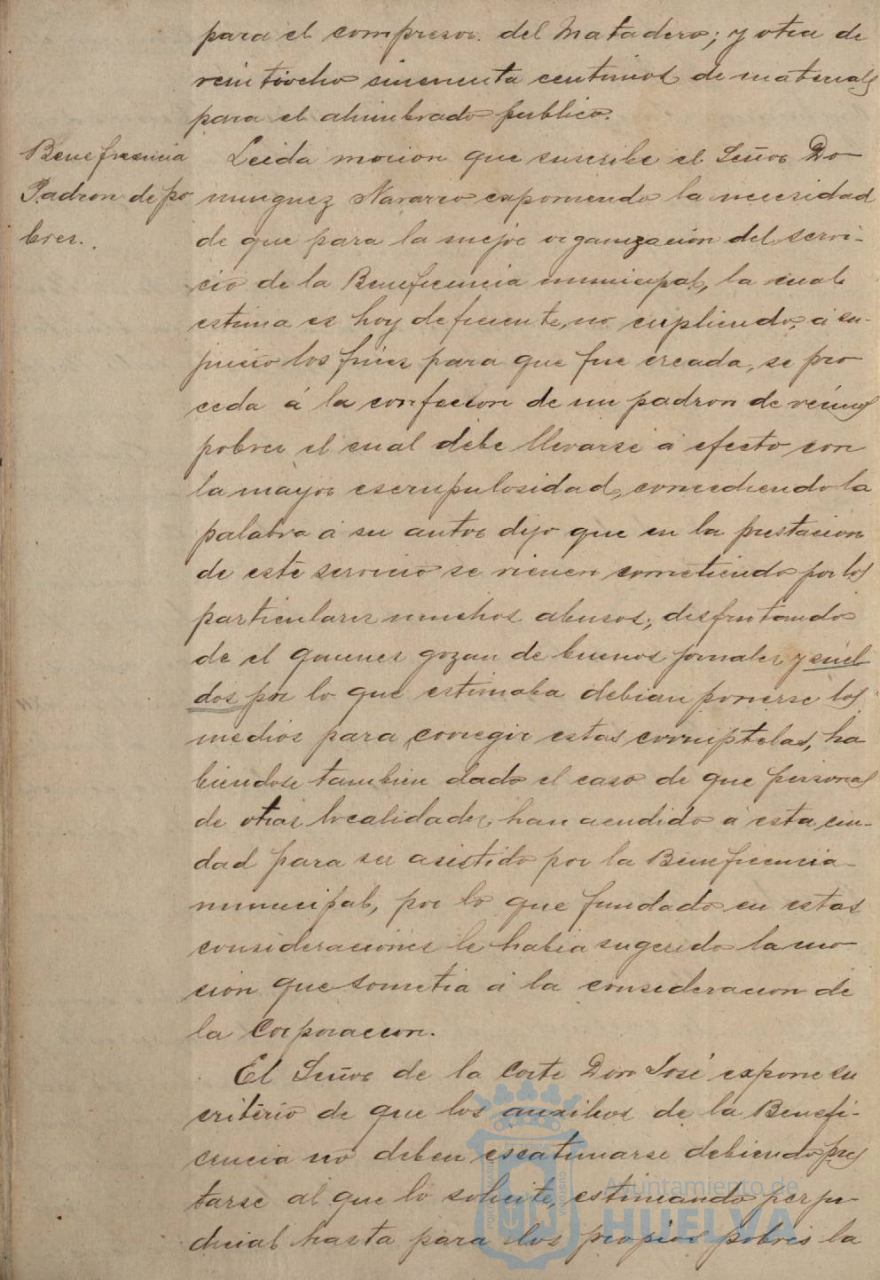 para el compresor. del Matadero; y otra de
veintiocho cincuenta centimos de materiales
para el alumbrado publico.
Beneficencia
Padron de po
bres.
Leida mocion que suscribe el Señor Do
minguez Navarro exponiendo la necesidad
de que para la mejor organización del servi-
cio de la Beneficencia municipal, la cual
estima es hoy deficiente, no cupliendo, á su
juicio los fines para que fue creada, se pro
ceda á la confeccion de un padron de vecinos
pobres el cual debe llevarse á efecto con
la mayor escrupulosidad, concediendo la
palabra á su autor dijo que en la prestacion
de este servicio se vienen cometiendo por los
particulares muchos abusos, disfrutando
de el quienes gozan de buenos jornales y suel
dos por lo que estimaba debian ponerse los
medios para corregir estas corruptelas, ha
biendose tambien dado el caso de que personas
de otras localidades, han acudido á esta ciu-
dad para ser asistido por la Beneficencia
municipal, por lo que fundado en estas
consideraciones le habia sugerido la mo
cion que sometia á la consideracion de
la Corporacion.
El Señor de la Corte Don José expone su
criterio de que los auxilios de la Benefi-
cencia no deben escatimarse debiendo pres
tarse al que lo solicite, estimando perju-
dicial hasta para los propios pobres la
Ayuntamiento de
HUELVA